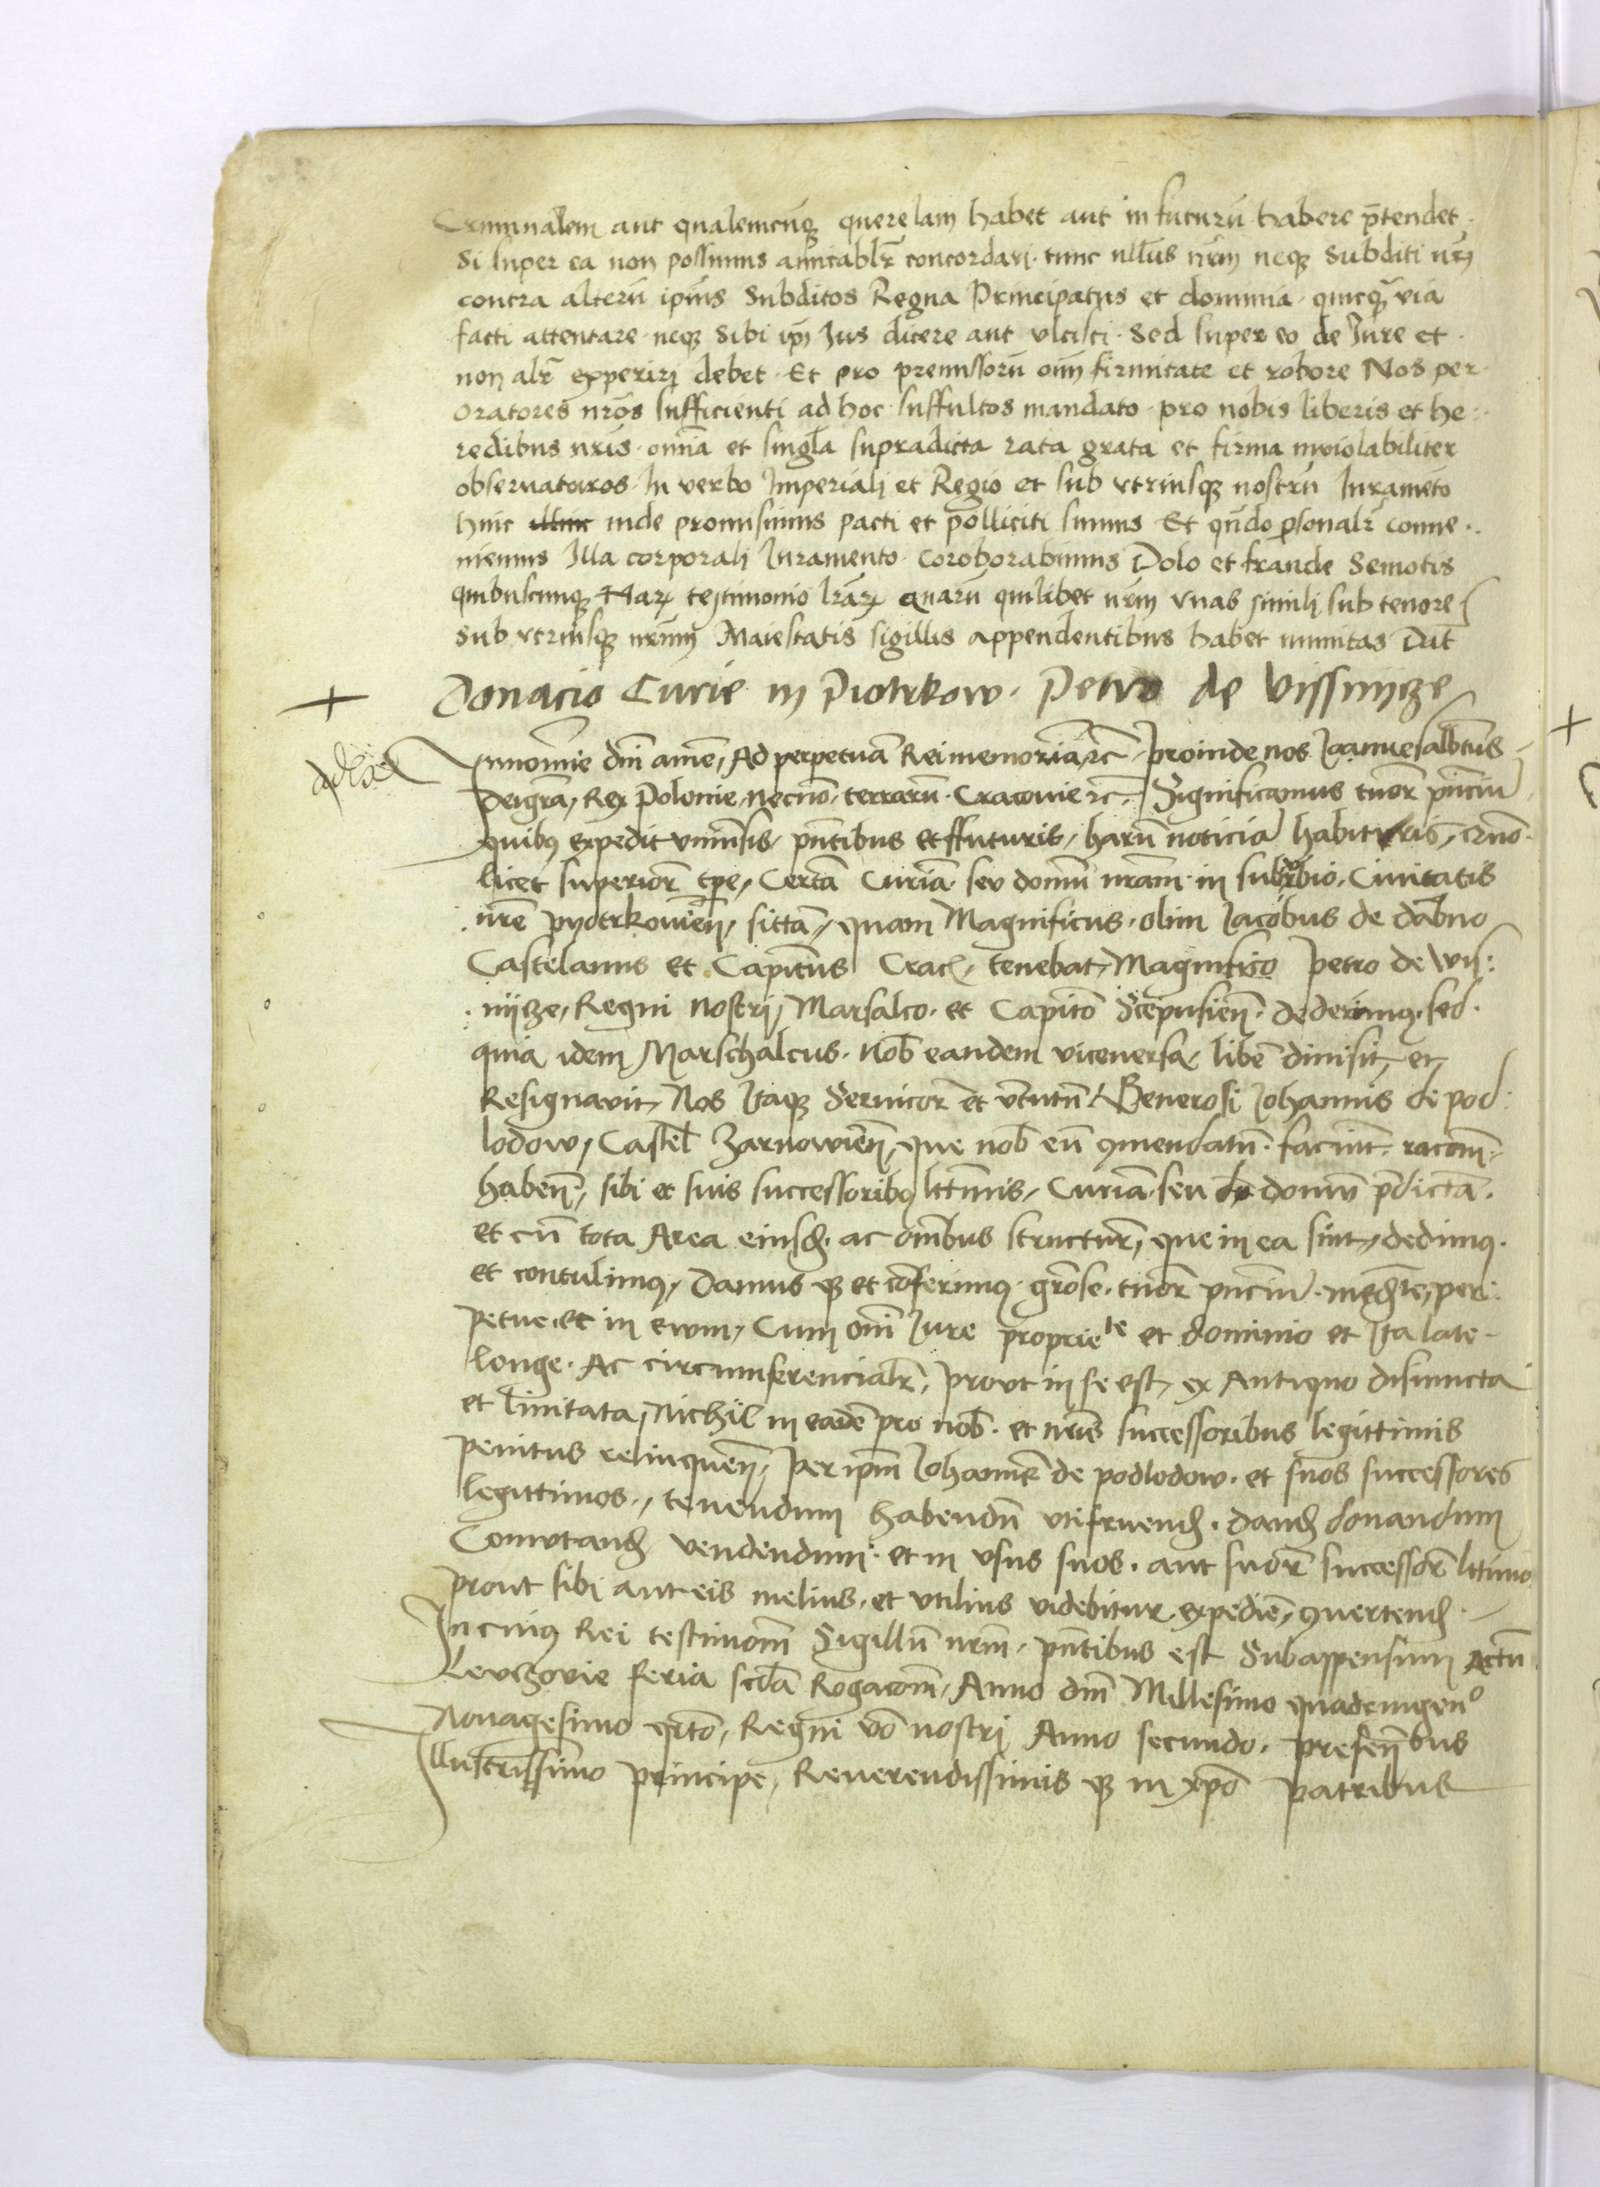 Criminalem aut qualemcūq querelam habet aut in futurū habere p̄tendet.
Si super ea non possimus amicablr̄ concordari. tunc nullus nr̄m neq subditi nr̄i
contra alterū ipīus subditos Regna Principatus et dominia. quicq̄ via
facti attentare. neq sibi ip̄i Ius dicere aut vlcisci. Sed super eo de Iure et.
non alr̄ experiri debet. Et pro premissorū oīm firmitate et robore Nos per
oratores nr̄os sufficienti ad hoc suffultos mandato. pro nobis liberis et he:
redibus nr̄is. omīa et singl̄a supradicta rata grata et firma inviolabiliter
observaturos. In verbo Imperiali et Regio et sub vtriusq nostrū Iuramēto
hinc illinc inde promisimus pacti et polliciti sumus Et qn̄do p̄sonalr̄ conue..
niemus Illa corporali Iuramento. coroborabimus Dolo et fraude Semotis
quibuscumq Harꝝ testimonio lr̄arꝝ quarū quilibet nr̄m vnas simili sub tenore
Sub vtriusq nr̄um Maiestatis sigillis appendentibus habet munitas Dat̄
Donacio Curie in Piotrkow. Petro de Vissnijcze
In nomīe dn̄i amē, Ad perpetuā Rei memoriā, ꝛc̄ proinde nos Ioannes albt̄us
Dei gr̄a, Rex Polonie, necnō, terrarū Cracovie ꝛc̄, Significamus tn̄ore pn̄ciū
quibꝯ expedit vniūsis, pn̄tibus et ffuturis, harū noticiā habituris,
licet superiorī tp̄e, Certā Curiā seu domū nr̄am. in suburbio, Civitatis
nr̄e pyotrkovien̄, sittā, quam Magnificus. olim Iacobus de dabno
Castelanus et Capitēus Crac̄, tenebat, Magnifico Petro de Wis:
nijcze, Regni nostri, Marsalco. et Capitō Scepusien̄. dederimꝯ. sed.
quia idem Marschalcus. nob̄ eandem viceversa. libē dimisit, et,
Resignavit, Nos Itaq Servitorꝝ et v̄tutū Generosi Iohannis de pod:
lodow, Castel̄ Zarnowien̄, que nob̄ eū ꝯmendatū. faciunt. racōm.
haben̄, sibi et suis successoribꝯ lttimis, Curiā. seu domū p̄dictā.
et cū tota Area eiusd̄. ac om̄ibus structurꝭ, que in ea sunt, dedimꝯ.
et contulimꝯ, Damus q et cōferimꝯ. grōse. tn̄ore pn̄ciū. per:
petue. et in ewm, Cum om̄i Iure proprieᵗᵉ et dominio et Ita late.
longe. Ac circumferencialr̄, prout in se est, ex Antiquo distincta
et limitata, Nichil in eadē pro nob̄. et nr̄is successoribus legittimis
penitus relinquen̄, Per ip̄m Iohannē de podlodow. et suos successores
legittimos,, tenendum habendū vtifruend̄. dand̄ donandum
Comutand̄ vendendum. et in vsus suos. aut suorꝝ successorꝝ lttimo
prout sibi aut eis melius. et vtilius videbitur. expediē, ꝯvertend̄.
In cuiꝯ Rei testimoniū Sigillū nr̄m. pn̄tibus est Subappensum Actū
Levczovie feria scd̄a Rogacōm, Anno dn̄i Millesimo quadringen°
Nonagesimo qrtō, Regni vō nostri Anno secundo. presen̄bus
Illustrissimo principe, Reverendissimis q in xp̄o patribus